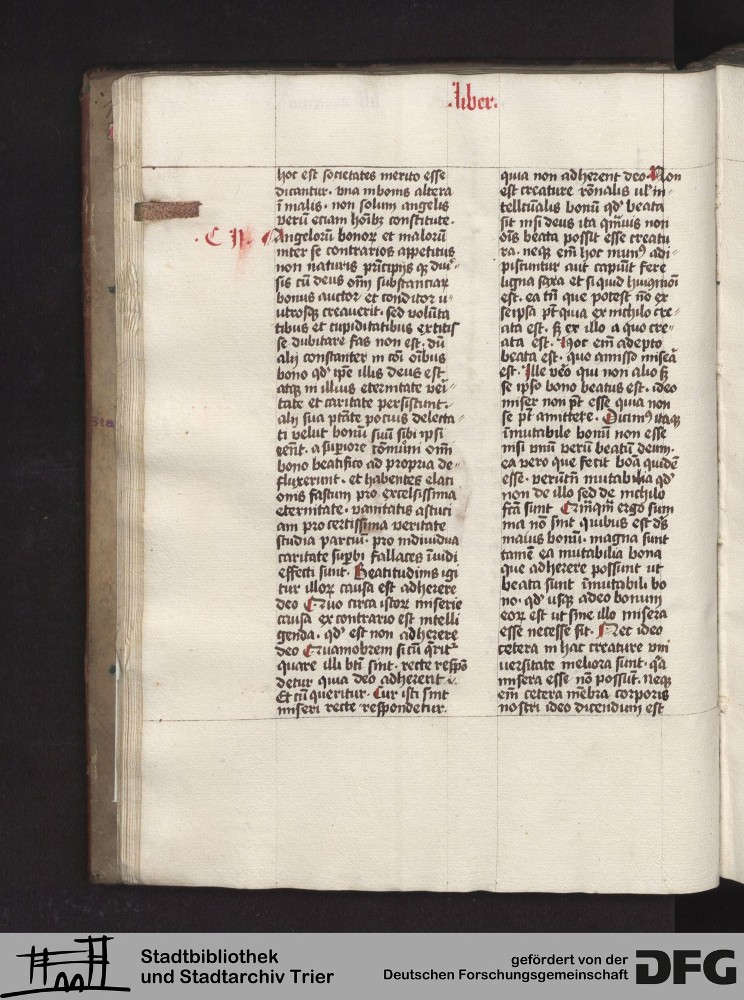 .liber.
hoc est societates merito esse
dicantur. vna in bonis altera
ī malis. non solum angelis
verū etiam hoībꝫ constitute.
. C II.
Angelorū bonoꝝ et maloꝝ
inter se contrarios appetitus
non naturis prīcipijs qꝫ diu͛-
sis cū deus om̄i substanciaꝝ
bonus auctor et conditor v-
utrosqꝫ creauerit. sed volūta
tibus et cupiditatibus extitis
se dubitare fas non est. dū
alij constanter in cōi oībus
bono qd' ip̄e illis deus est
atqꝫ in illius eternitate vei͛-
tate et caritate persistunt.
alij sua ptāte pocius delecta-
ti velut bonū suū sibi ipsi
eēnt. a supiore cōmuni om̄i
bono beatifico ad propria de-
fluxerunt. et habentes elati
onis fastum pro excelsissima
eternitate. vanitatis astuci
am pro certissima veritate
studia parciū. pro indiuidua
caritate supbi fallaces īuidi
effecti sunt. Beatitudinis igi
tur illoꝝ causa est adherere
deo Quo circa istoꝝ miserie
causa ex contrario est intelli
genda. qd' est non adherere
deo Quamobrem si cū q̄rit͛
quare illi bti sint. recte respō
detur quia deo adherent.
Et cū queritur. Cur isti sint
miseri recte respondetur.
quia non adherent deo. Non
est creature rōnalis ul' in-
tellectualis bonū qd' beata
sit nisi deus ita qm̄uis non
oīs beata possit esse creatu
ra. neqꝫ em̄ hoc munꝰ adi-
piscuntur aut capiūt fere
ligna saxa et si quid huiꝰmōi
est. ea tn̄ que potest nō ex
seipsa pt̄ quia ex nichilo cre-
ata est. sꝫ ex illo a quo cre-
ata est. Hoc em̄ adepto
beata est. quo amisso miserā
est. Ille vēo qui non alio sꝫ
se ipso bono beatus est. ideo
miser non pt̄ esse quia non
se pt̄ amittere. Dicimꝰ itaqꝫ
īmutabile bonū non esse
nisi vnū verū beatū deum.
ea vero que fecit bōa quidē
esse. verūtn̄ mutabilia qd'
non de illo sed de nichilo
fc̄a sunt Qm̄qm̄ ergo sum
ma nō sint quibus est dꝰs
maius bonū. magna sunt
tamē ea mutabilia bona
que adherere possunt ut
beata sunt īmutabili bo
no. qd' usqꝫ adeo bonum
eoꝝ est ut sine illo misera
esse necesse sit. Nec ideo
cetera in hac creature vni
uersitate meliora sunt. qa
misera esse nō possūt. neqꝫ
em̄ cetera mēbra corporis
nostri ideo dicendum est
Sta
Stadtbibliothek
und Stadtarchiv Trier
gefördert von der
Deutschen Forschungsgemeinschaft
DFG